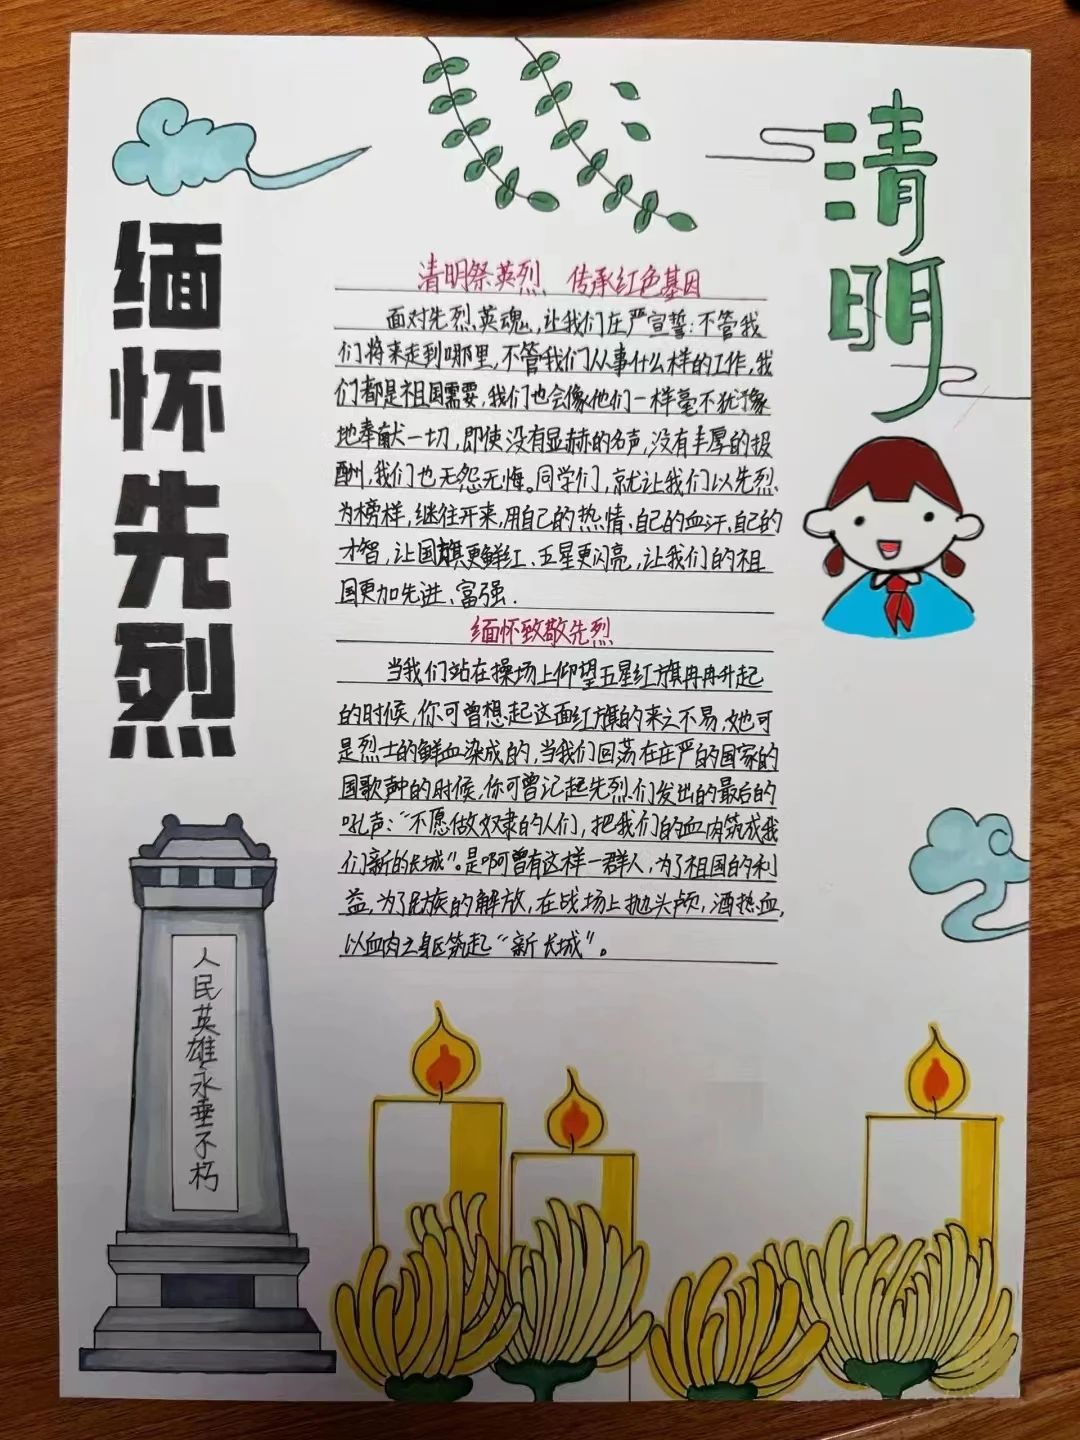 缅怀先烈
清明
清明祭英烈、传承红色基因
面对先烈英魂,让我们庄严宣誓:不管我
们将来走到哪里,不管我们从事什么样的工作,我
们都是祖国需要,我们也会像他们一样毫不犹豫
地奉献一切,即使没有显赫的名声,没有丰厚的报
酬,我们也无怨无悔。同学们,就让我们以先烈
为榜样,继往开来,用自己的热情、自己的血汗、自己的
才智,让国旗更鲜红、五星更闪亮,让我们的祖
国更加先进、富强.
缅怀致敬先烈
当我们站在操场上仰望五星红旗冉冉升起
的时候,你可曾想起这面红旗的来之不易,她可
是烈士的鲜血染成的,当我们回荡在庄严的国家的
国歌声的时候,你可曾记起先烈们发出的最后的
吼声:“不愿做奴隶的人们,把我们的血肉筑成我
们新的长城”。是啊可曾有这样一群人,为了祖国的利
益,为了民族的解放,在战场上抛头颅,洒热血,
以血肉之身区筑起“新长城”。
人民英雄永垂不朽